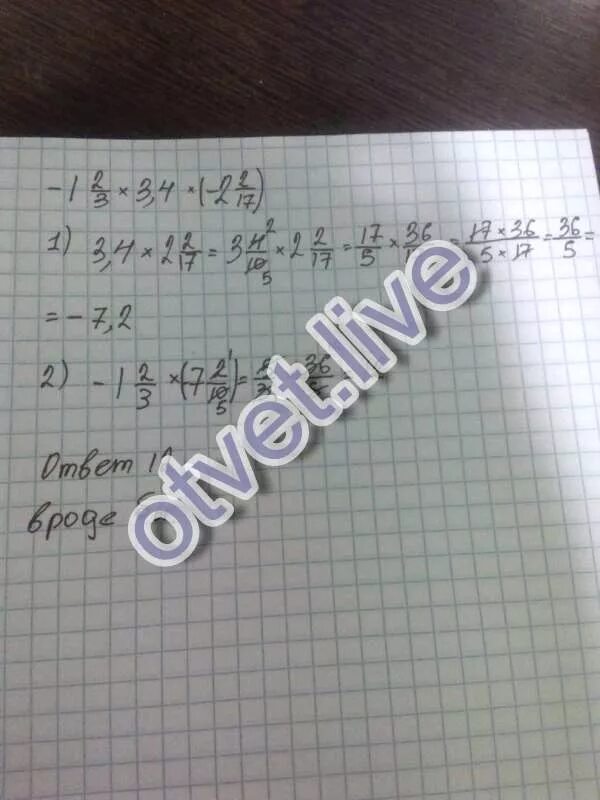 -1 2/3 × 3,4 × (-2 2/17)
1) 3,4 × 2 2/17 = 3 4²/10₅ × 2 2/17 = 17/5 × 36/ = 17 × 36/5 × 17 = 36/5 =
= - 7,2
2) -1 2/3 × (7 2¹/10₅) = 36
Ответ
вроде
otvet.live